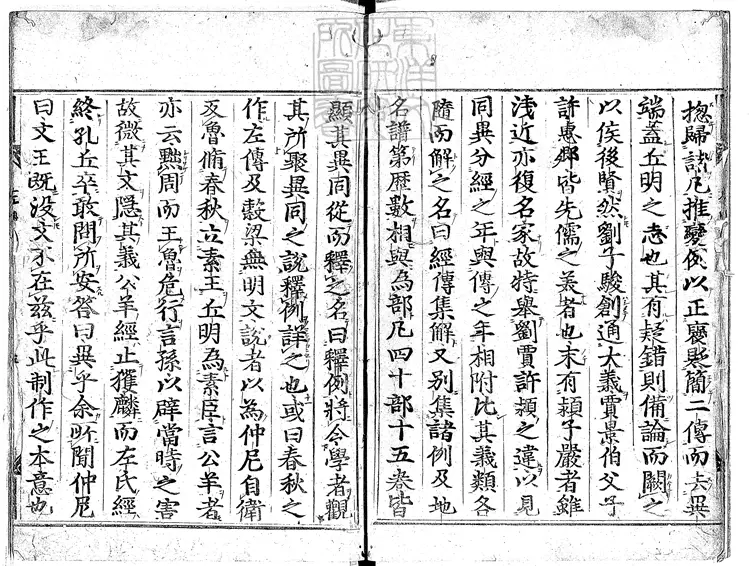 揔歸諸凡推變例以正襃貶簡二傳而去異
端盖丘明之志也其有疑錯則備論而闕之
以俟後賢然劉子駿創通大義賈景伯父子
許惠卿皆先儒之美者也末有潁子嚴者雖
浅近亦復名家故特舉劉賈許潁之違以見
同異分經之年與傳之年相附比其義類各
隨而解之名曰經傳集解又別集諸例及地
名譜第歷數相與為部凡四十部十五卷皆
顯其異同從而釋之名曰釋例將令學者觀
其所聚異同之說釋例詳之也或曰春秋之
作左傳及穀梁無明文說者以為仲尼自衛
反魯脩春秋立素王丘明為素臣言公羊者
亦云黜周而王魯危行言孫以辟當時之害
故微其文隱其義公羊經止獲麟而左氏經
終孔丘卒敢問所安荅曰異乎余所聞仲尼
曰文王既没文不在兹乎此制作之本意也